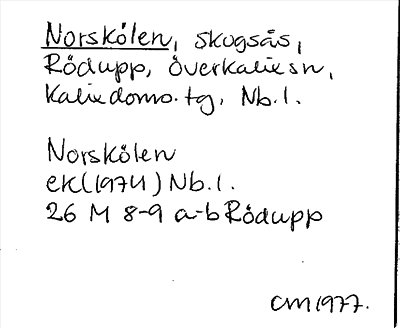 Norskölen, skogsås,
Rödupp, Överkalix sn,
Kalix doms.tg, Nb.l.
Norskölen
ek (1974) Nb.l.
26 M 8-9 a-b Rödupp
CM 1977.